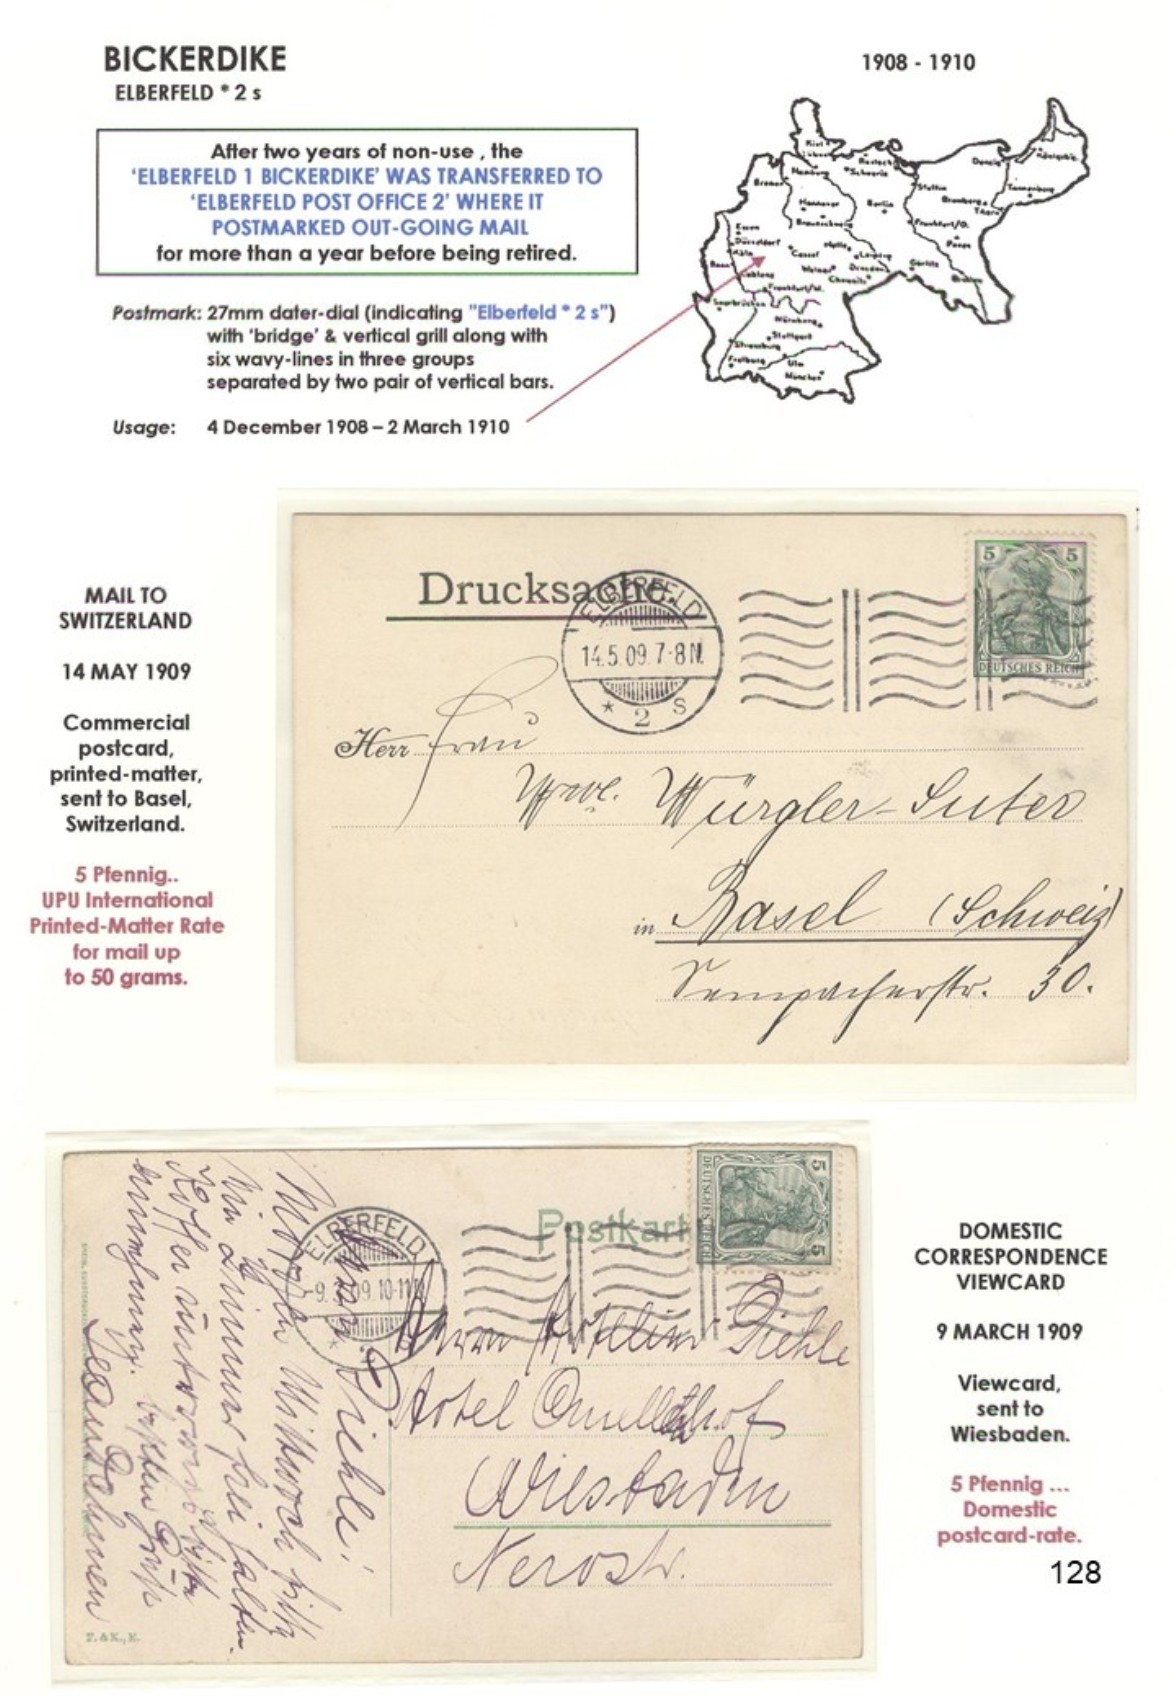 BICKERDIKE
ELBERFELD * 2 s
1908 - 1910
After two years of non-use , the
‘ELBERFELD 1 BICKERDIKE’ WAS TRANSFERRED TO
‘ELBERFELD POST OFFICE 2’ WHERE IT
POSTMARKED OUT-GOING MAIL
for more than a year before being retired.
Postmark: 27mm dater-dial (indicating "Elberfeld * 2 s")
with 'bridge' & vertical grill along with
six wavy-lines in three groups
separated by two pair of vertical bars.
Usage: 4 December 1908 – 2 March 1910
Kiel
Hamburg
Rostock
Schwerin
Danzig
Königsbg.
Bremen
Stettin
Tannenburg
Bromberg
Thorn
Hannover
Berlin
Braunschweig
Frankfurt/O.
Posen
Essen
Düsseldorf
Köln
Cassel
Halle
Leipzig
Bonn
Weimar
Dresden
Görlitz
Breslau
Coblenz
Chemnitz
Frankfurt/M.
Saarbrücken
Nürnberg
Stuttgart
Strassburg
Freiburg
Ulm
München
MAIL TO
SWITZERLAND
14 MAY 1909
Commercial
postcard,
printed-matter,
sent to Basel,
Switzerland.
5 Pfennig..
UPU International
Printed-Matter Rate
for mail up
to 50 grams.
Drucksache.
ELBERFELD
14.5.09.7-8N.
* 2 S
5 5
DEUTSCHES REICH
Herr Frau
Wwe. Würgler-Suter
in Basel (Schweiz)
Sempacherstr. 30.
Postkart
ELBERFELD
-9.3.09.10-11
*
5 5
DEUTSCHES REICH
Herrn Hotelier Diehle
Hotel Quellenhof
Wiesbaden
Nerostr.
Frau Diehle!
Morgen Mittwoch bitte
ein Zimmer frei halten.
T. & K., K.
DOMESTIC
CORRESPONDENCE
VIEWCARD
9 MARCH 1909
Viewcard,
sent to
Wiesbaden.
5 Pfennig ...
Domestic
postcard-rate.
128